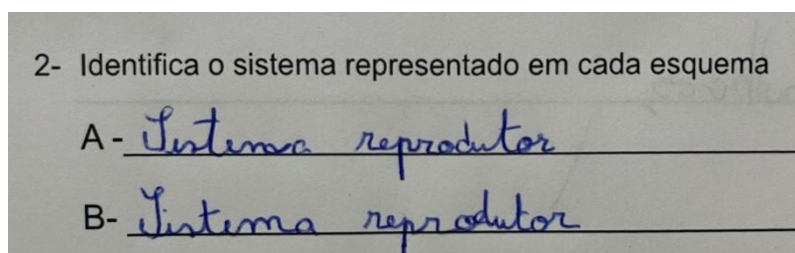 2- Identifica o sistema representado em cada esquema
A - Sistema reprodutor
B- Sistema reprodutor